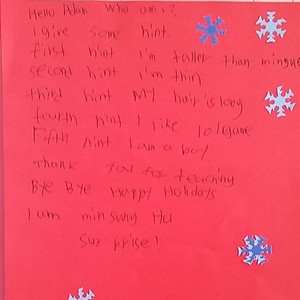 Hello Adam who am i?
I give some hint.
first hint I'm taller than mingu
second hint i'm thin
third hint My hair is long
fourth hint I like
Fifth hint I am a boy
Thank you for teaching
Bye Bye Happy Holidays
I am min sung Hu
Surprise!